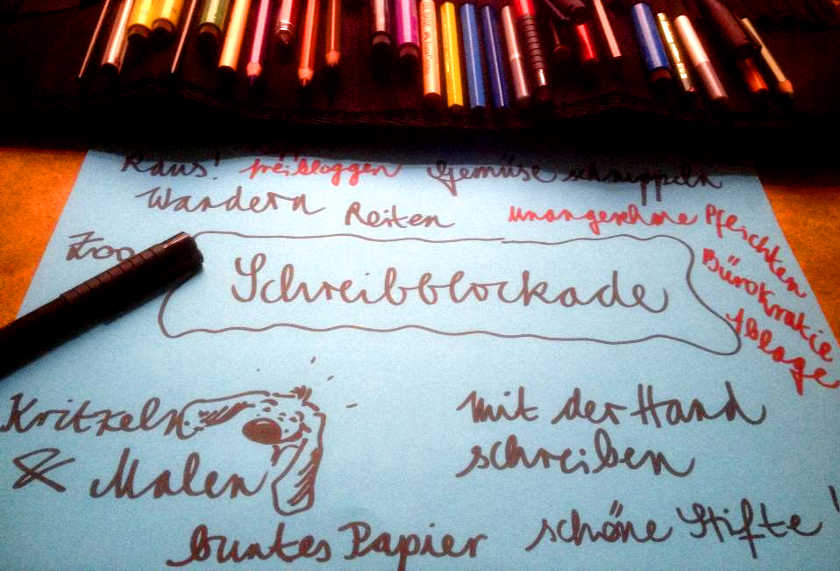 Raus! freibloggen Gemüse schnippeln
Wandern Reiten unangenehme Pflichten
Zoo
Schreibblockade
Bürokratie
Ablage
Kritzeln
& Malen
mit der Hand
schreiben
buntes Papier
schöne Stifte!